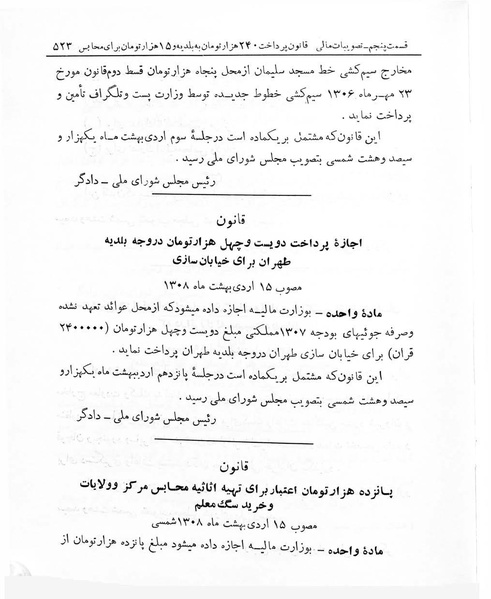 قسمت پنجم - تصویبات مالی قانون پرداخت ۲۴۰ هزار تومان به بلدیه و ۱۵ هزار تومان برای محابس ۵۲۳
مخارج سیم‌کشی خط مسجد سلیمان از محل پنجاه هزار تومان قسط دوم قانون مورخ
۲۳ مهر ماه ۱۳۰۶ سیم‌کشی خطوط جدیده توسط وزارت پست و تلگراف تأمین و
پرداخت نماید .
این قانون که مشتمل بر یکماده است در جلسهٔ سوم اردی بهشت ماه یکهزار و
سیصد و هشت شمسی بتصویب مجلس شورای ملی رسید .
رئیس مجلس شورای ملی - دادگر
قانون
اجازهٔ پرداخت دویست و چهل هزار تومان در وجه بلدیه
طهران برای خیابان سازی
مصوب ۱۵ اردی بهشت ماه ۱۳۰۸
مادهٔ واحده - بوزارت مالیه اجازه داده میشود که از محل عوائد تعهد نشده
وصرفه جوئیهای بودجه ۱۳۰۷ مملکتی مبلغ دویست و چهل هزار تومان (۲۴۰۰۰۰۰
قران) برای خیابان سازی طهران در وجه بلدیه طهران پرداخت نماید .
این قانون که مشتمل بر یکماده است در جلسهٔ پانزدهم اردیبهشت ماه یکهزار و
سیصد و هشت شمسی بتصویب مجلس شورای ملی رسید .
رئیس مجلس شورای ملی - دادگر
قانون
پانزده هزار تومان اعتبار برای تهیه اثاثیه محابس مرکز و ولایات
و خرید سگ معلم
مصوب ۱۵ اردی بهشت ماه ۱۳۰۸ شمسی
مادهٔ واحده - بوزارت مالیه اجازه داده میشود مبلغ پانزده هزار تومان از